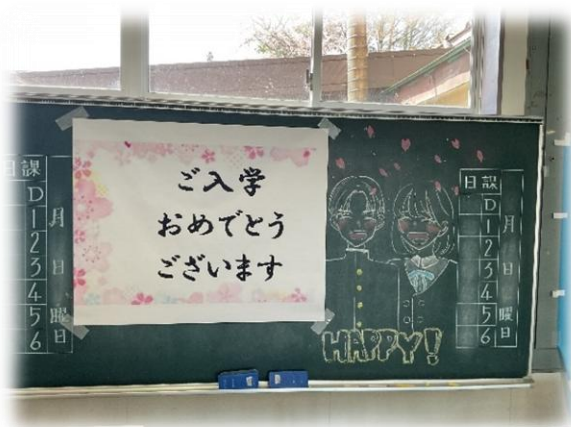 日課
D
1
2
3
4
5
6
月
日
曜
ご入学
おめでとう
ございます
HAPPY!
日課
D
1
2
3
4
5
6
月
日
曜日